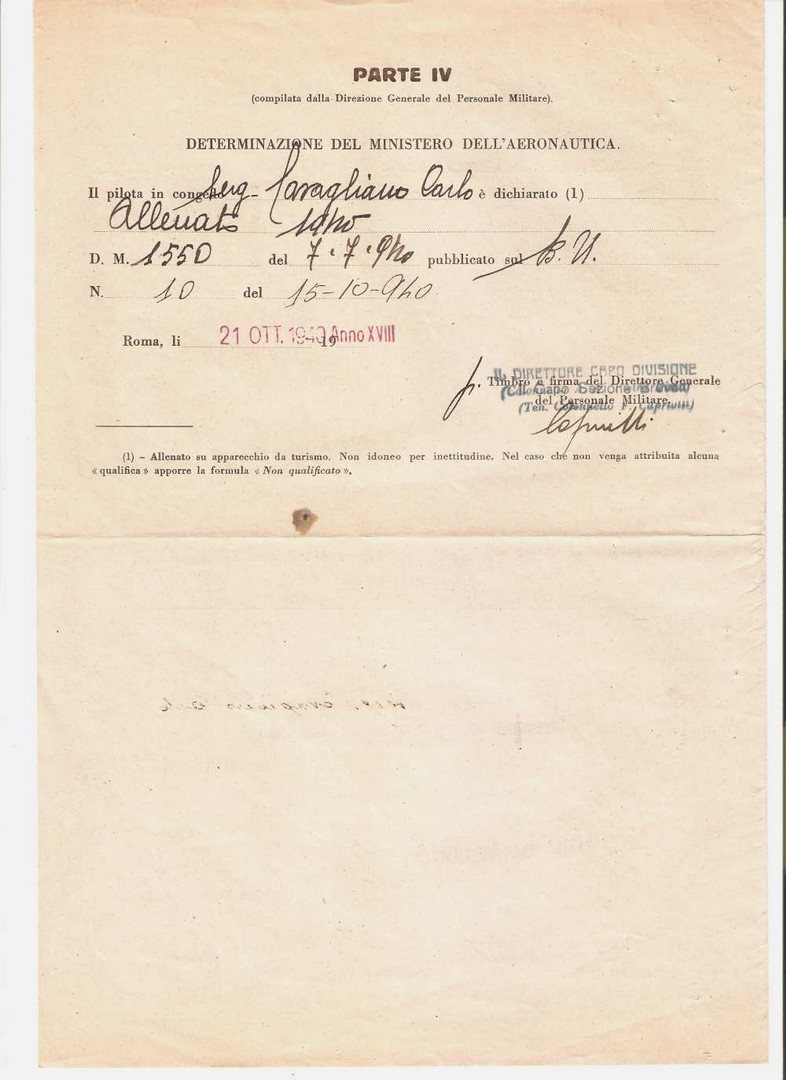 PARTE IV
(compilata dalla Direzione Generale del Personale Militare).
DETERMINAZIONE DEL MINISTERO DELL'AERONAUTICA.
Il pilota in congedo Serg- Cavagliano Carlo è dichiarato (1)
Allenato 1940
D. M. 1550 del 7-7-940 pubblicato sul B. U.
N. 10 del 15-10-940
Roma, li 21 OTT. 1940 19 Anno XVIII
IL DIRETTORE CAPO DIVISIONE
Timbro e firma del Direttore Generale
del Personale Militare.
(1) – Allenato su apparecchio da turismo. Non idoneo per inettitudine. Nel caso che non venga attribuita alcuna
« qualifica » apporre la formula « Non qualificato ».